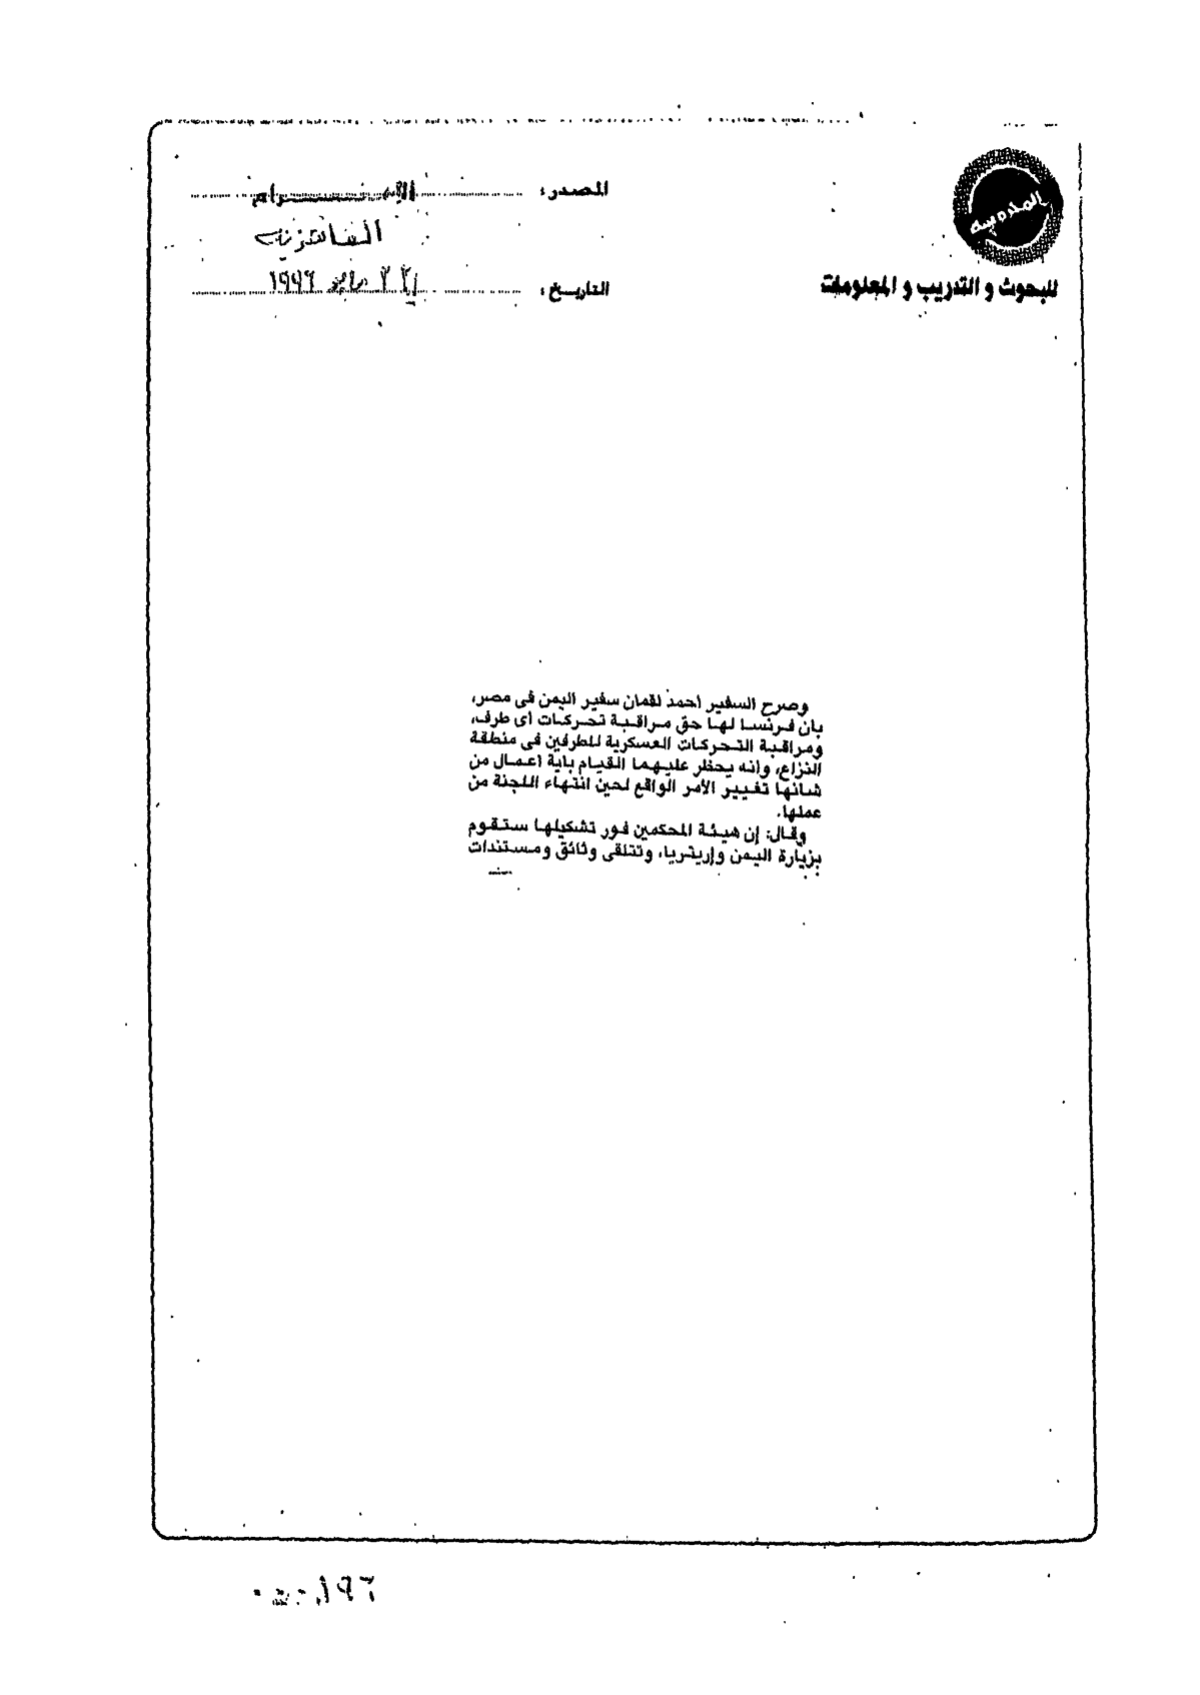 المدوسه
للبحوث و التدريب و المعلومات
المصدر:
التاريخ: ٢٢ مايو ١٩٩٦
وصرح السفير احمد لقمان سفير اليمن فى مصر،
بان فرنسا لها حق مراقبة تحركات اى طرف،
ومراقبة التحركات العسكرية للطرفين فى منطقة
النزاع، وانه يحظر عليهما القيام باية اعمال من
شانها تغيير الأمر الواقع لحين انتهاء اللجنة من
عملها.
وقال: إن هيئة المحكمين فور تشكيلها ستقوم
بزيارة اليمن وإريتريا، وتتلقى وثائق ومستندات